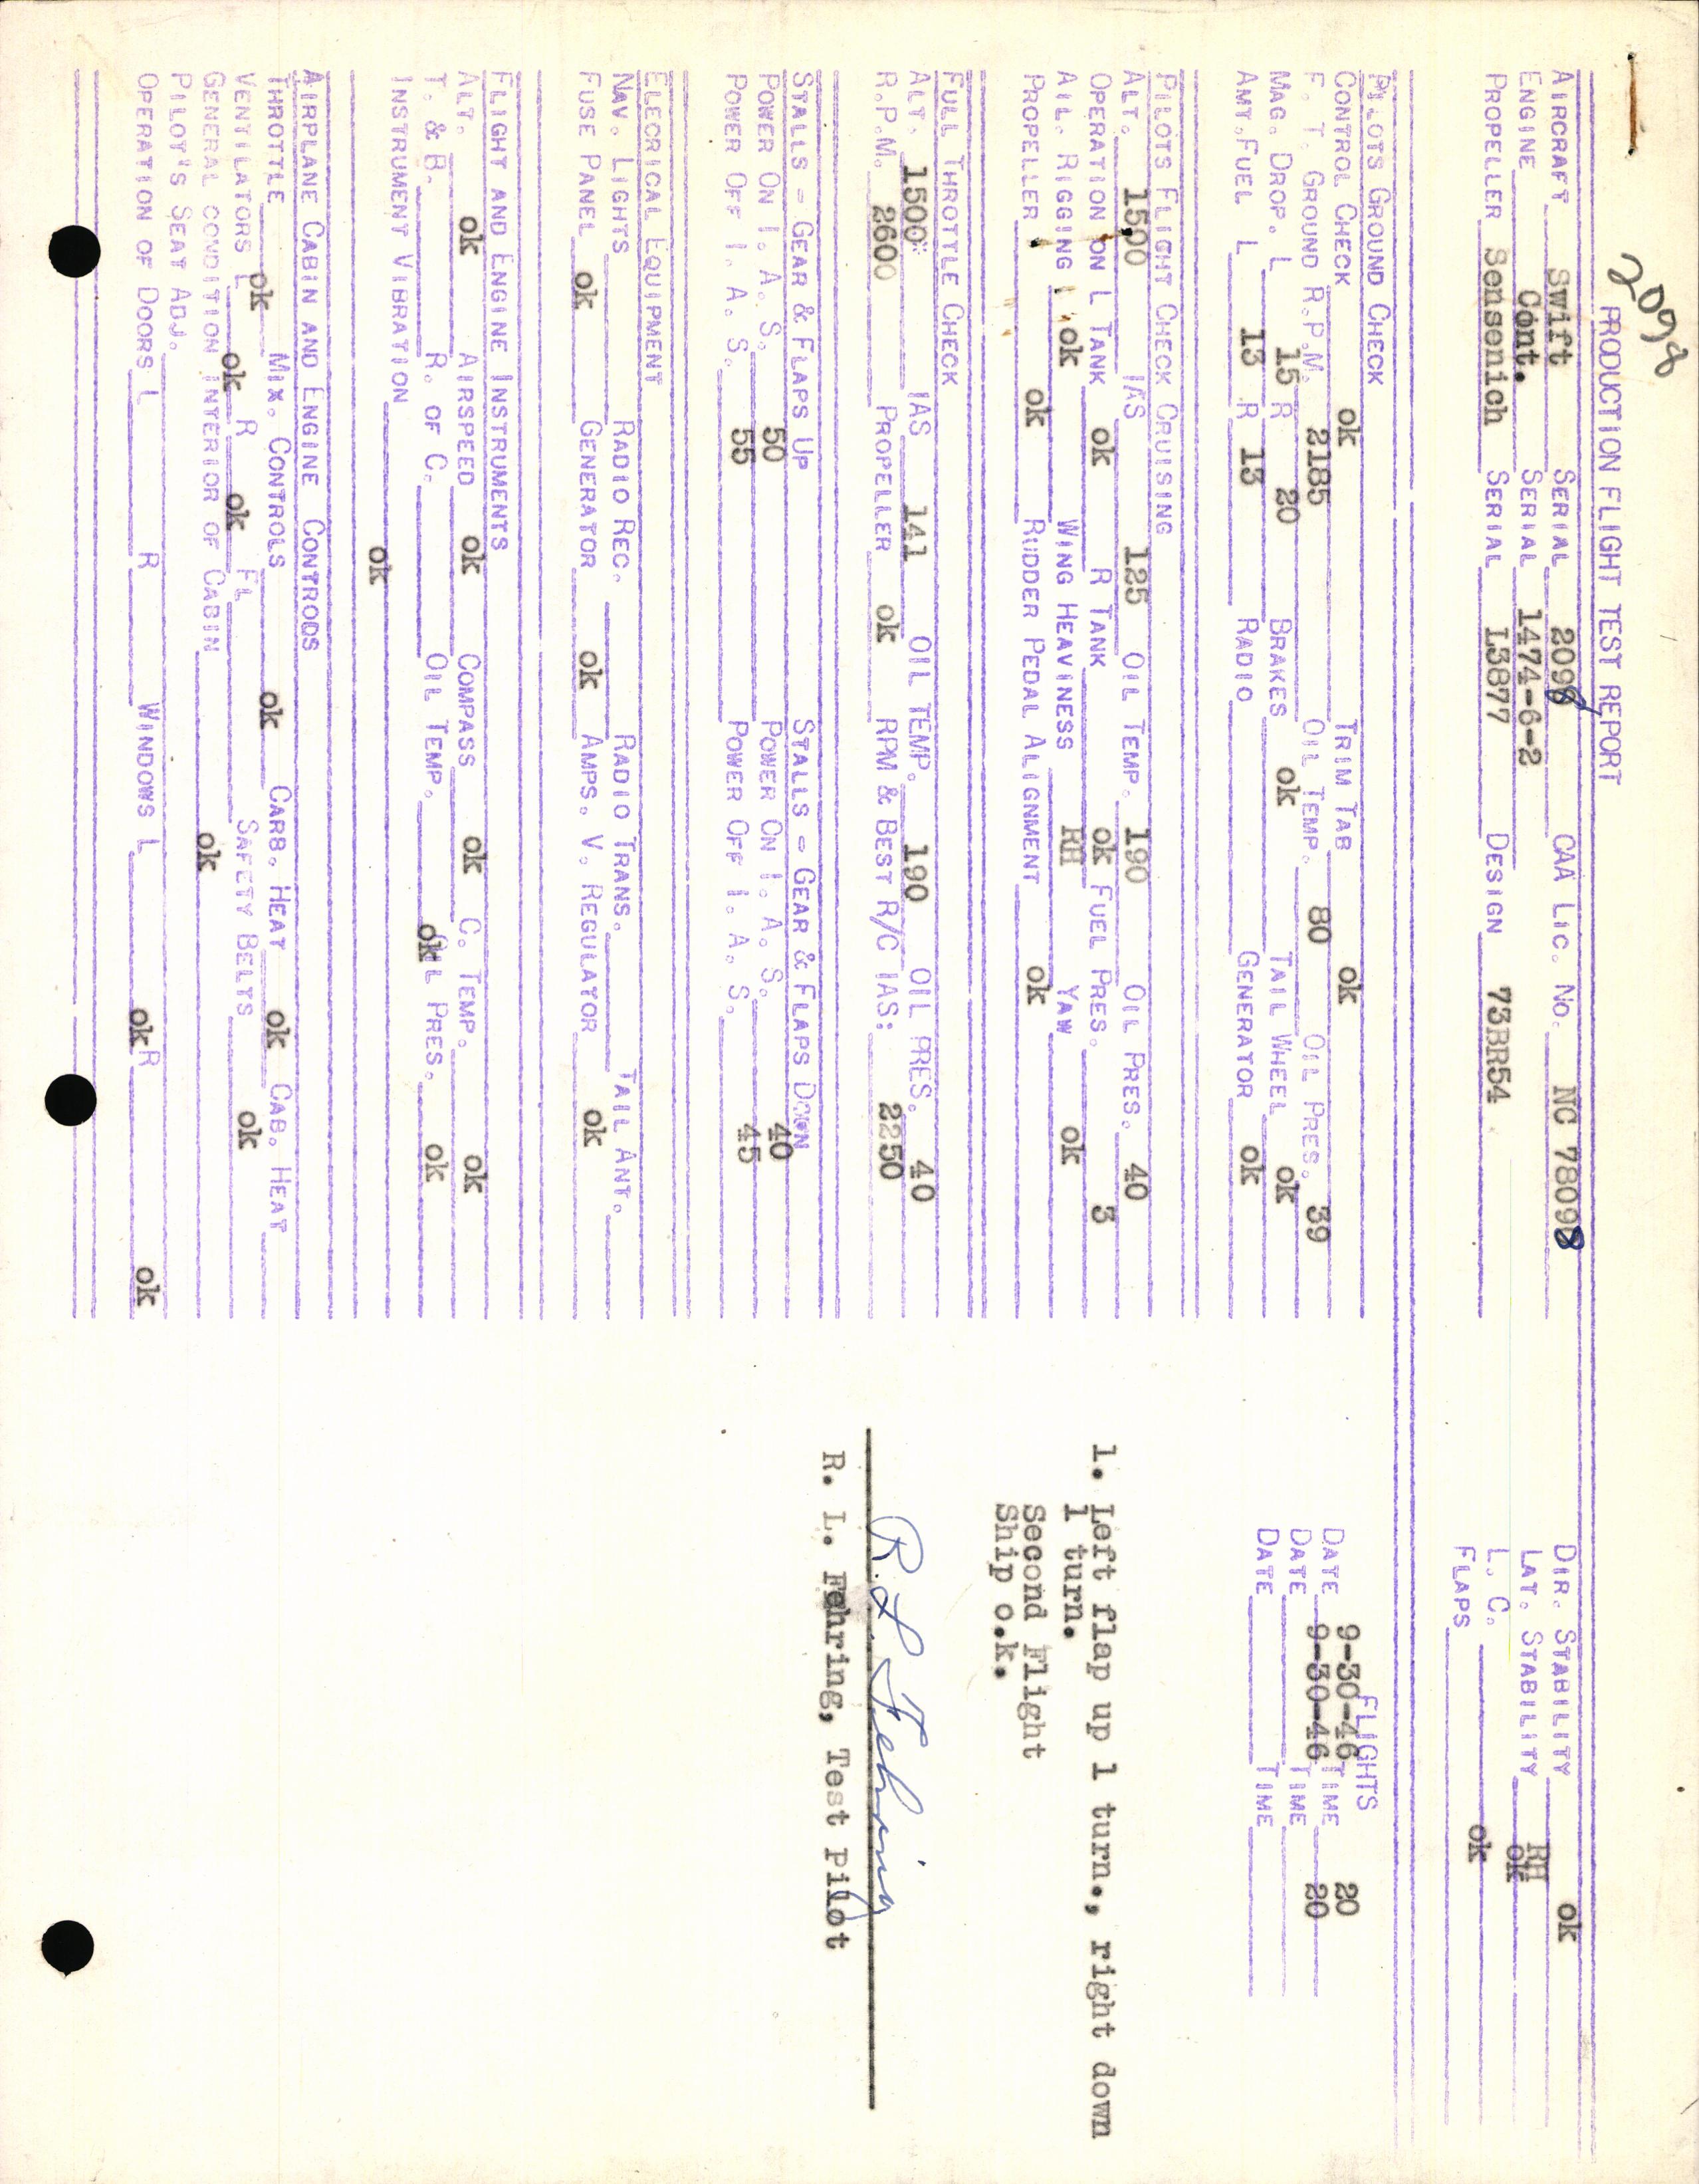 2098
PRODUCTION FLIGHT TEST REPORT
AIRCRAFT Swift SERIAL 2098 CAA LIC. NO. NC 78098
ENGINE Cont. SERIAL 1474-6-2
PROPELLER Sensenich SERIAL L3877 DESIGN 73BR54
DIR. STABILITY ok
LAT. STABILITY RH ok
L. C. ok
FLAPS
PILOTS GROUND CHECK
CONTROL CHECK ok TRIM TAB ok
F. T. GROUND R.P.M. 2185 OIL TEMP. 80 OIL PRES. 39
MAG. DROP. L 15 R 20 BRAKES ok TAIL WHEEL ok
AMT. FUEL L 13 R 13 RADIO GENERATOR ok
FLIGHTS
DATE 9-30-46 TIME 20
DATE 9-30-46 TIME 20
DATE TIME
PILOTS FLIGHT CHECK CRUISING
ALT. 1500 IAS 125 OIL TEMP. 190 OIL PRES. 40
OPERATION ON L TANK ok R TANK ok FUEL PRES. 3
AIL. RIGGING ok WING HEAVINESS RH YAW ok
PROPELLER ok RUDDER PEDAL ALIGNMENT ok
FULL THROTTLE CHECK
ALT. 1500 IAS 141 OIL TEMP. 190 OIL PRES. 40
R.P.M. 2600 PROPELLER ok RPM & BEST R/C IAS: 2250
STALLS - GEAR & FLAPS UP STALLS - GEAR & FLAPS DOWN
POWER ON I. A. S. 50 POWER ON I. A. S. 40
POWER OFF I. A. S. 55 POWER OFF I. A. S. 45
ELECRICAL EQUIPMENT
NAV. LIGHTS RADIO REC. RADIO TRANS. TAIL ANT.
FUSE PANEL ok GENERATOR ok AMPS. V. REGULATOR ok
FLIGHT AND ENGINE INSTRUMENTS
ALT. ok AIRSPEED ok COMPASS ok C. TEMP. ok
T. & B. R. OF C. OIL TEMP. ok OIL PRES. ok
INSTRUMENT VIBRATION ok
AIRPLANE CABIN AND ENGINE CONTRODS
THROTTLE ok MIX. CONTROLS ok CARB. HEAT ok CAB. HEAT
VENTILATORS L ok R ok FL SAFETY BELTS ok
GENERAL CONDITION INTERIOR OF CABIN ok
PILOT'S SEAT ADJ.
OPERATION OF DOORS L R WINDOWS L ok R ok
1. Left flap up 1 turn., right down
1 turn.
Second Flight
Ship o.k.
R L Fehring
R. L. Fehring, Test Pilot